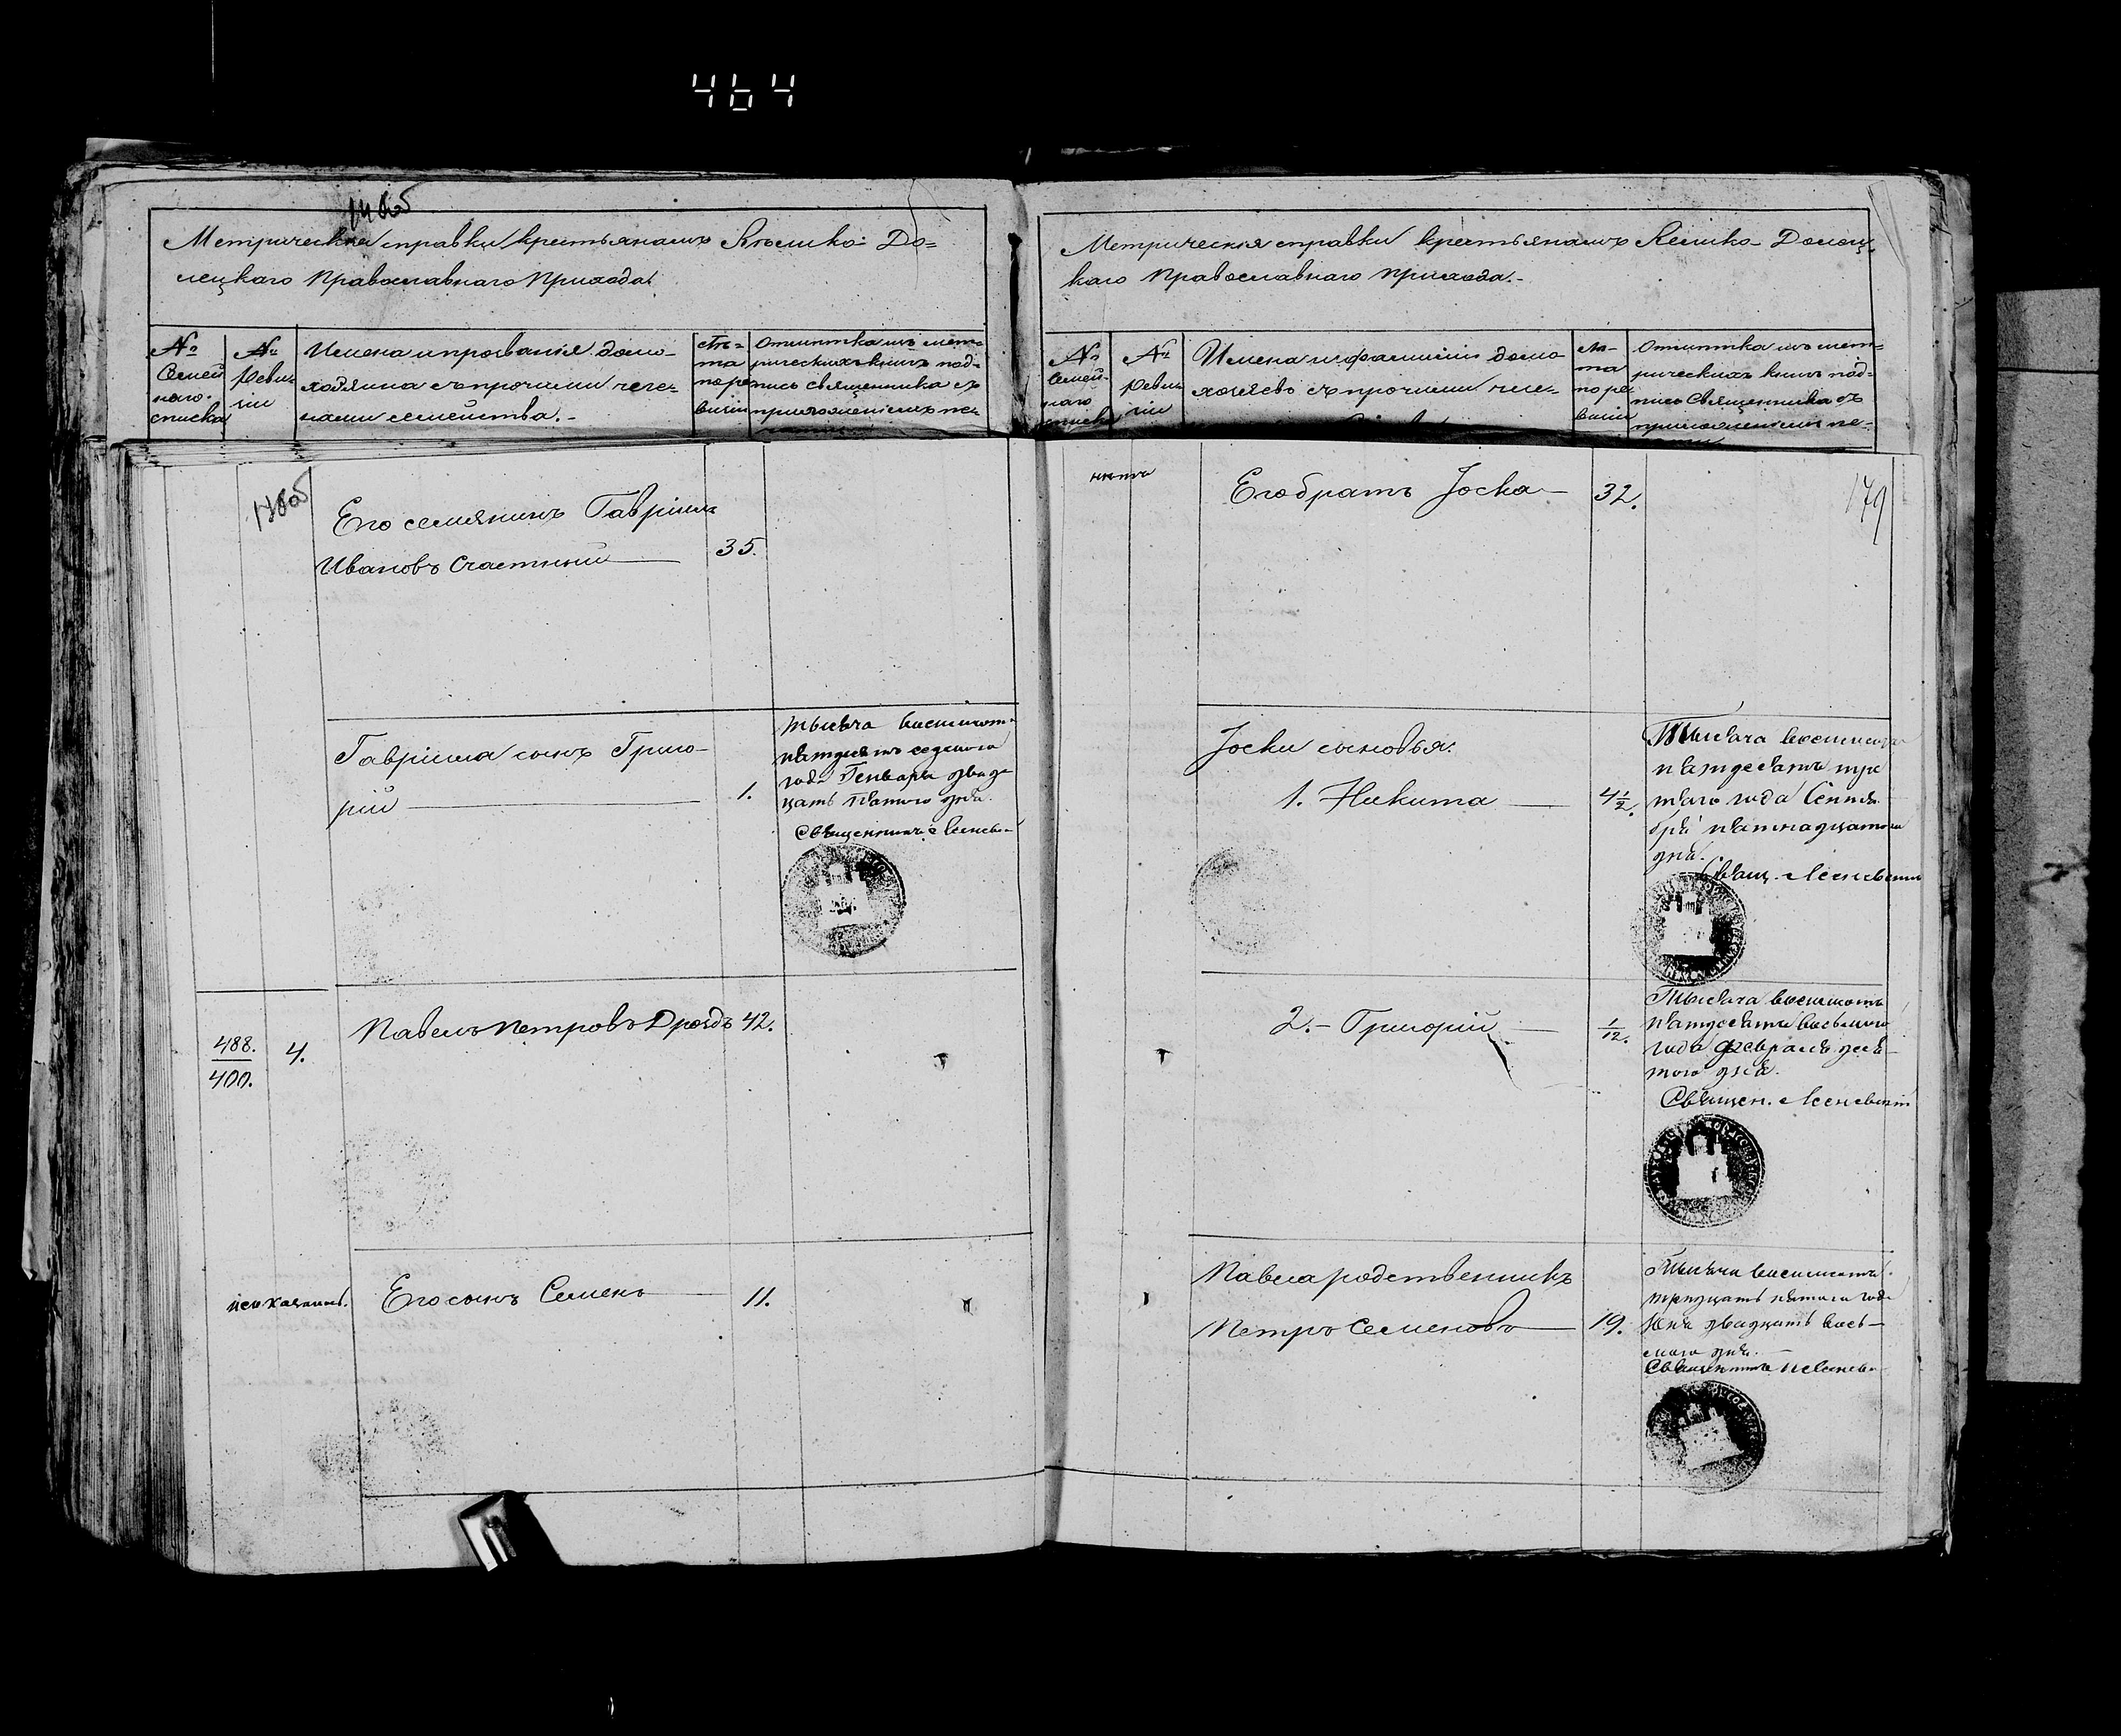 464
Метрическія справки крестьянамъ Велико-До=
лецкаго Православнаго Прихода.
№ Семей наго списка
№ Реви зіи
Имена и прозванія домо-
хозяина съ прочими чле=
нами семейства.-
Лѣ= та по ре визіи
Отмѣтка изъ мет=
рическихъ книгъ под=
пись священника съ
приложеніемъ пе=
Его семянинъ Гавріилъ
Ивановъ Счастный
35.
Гавріила сынъ Григо-
рій
1.
Тысяча восемьсот
пятдесятъ седьмаго
года Генваря двад
цать пятого дня.
Священникъ
488.
400.
4.
Павелъ Петровъ Дроздъ 42.
Его сынъ Семенъ
11.
Метрическія справки крестьянамъ Велико-Долец
каго Православнаго Прихода.-
№ Семей- наго списка
№ Реви зіи
Имена и фамиліи домо
хозяевъ съ прочими чле=
Лѣ- та по ре визіи
Отмѣтка изъ мет=
рическихъ книгъ под=
пись Священника съ
приложеніемъ пе=
179
Его братъ Іоска
32.
Іоски сыновья.
1. Никита
4 1/2.
Тысяча восемьсотъ
пятдесятъ тре
тьяго года Сентя
бря пятнадцатого
дня.
Свящ.
2.- Григорій
1/12.
Тысяча восемьсотъ
пятдесятъ восьмого
года Февраля девя
того дня.
Священ.
Павла родственникъ
Петръ Семеновъ
19.
Тысяча восемьсотъ
тридцать пятаго года
двадцать вось-
маго дня.
Священникъ